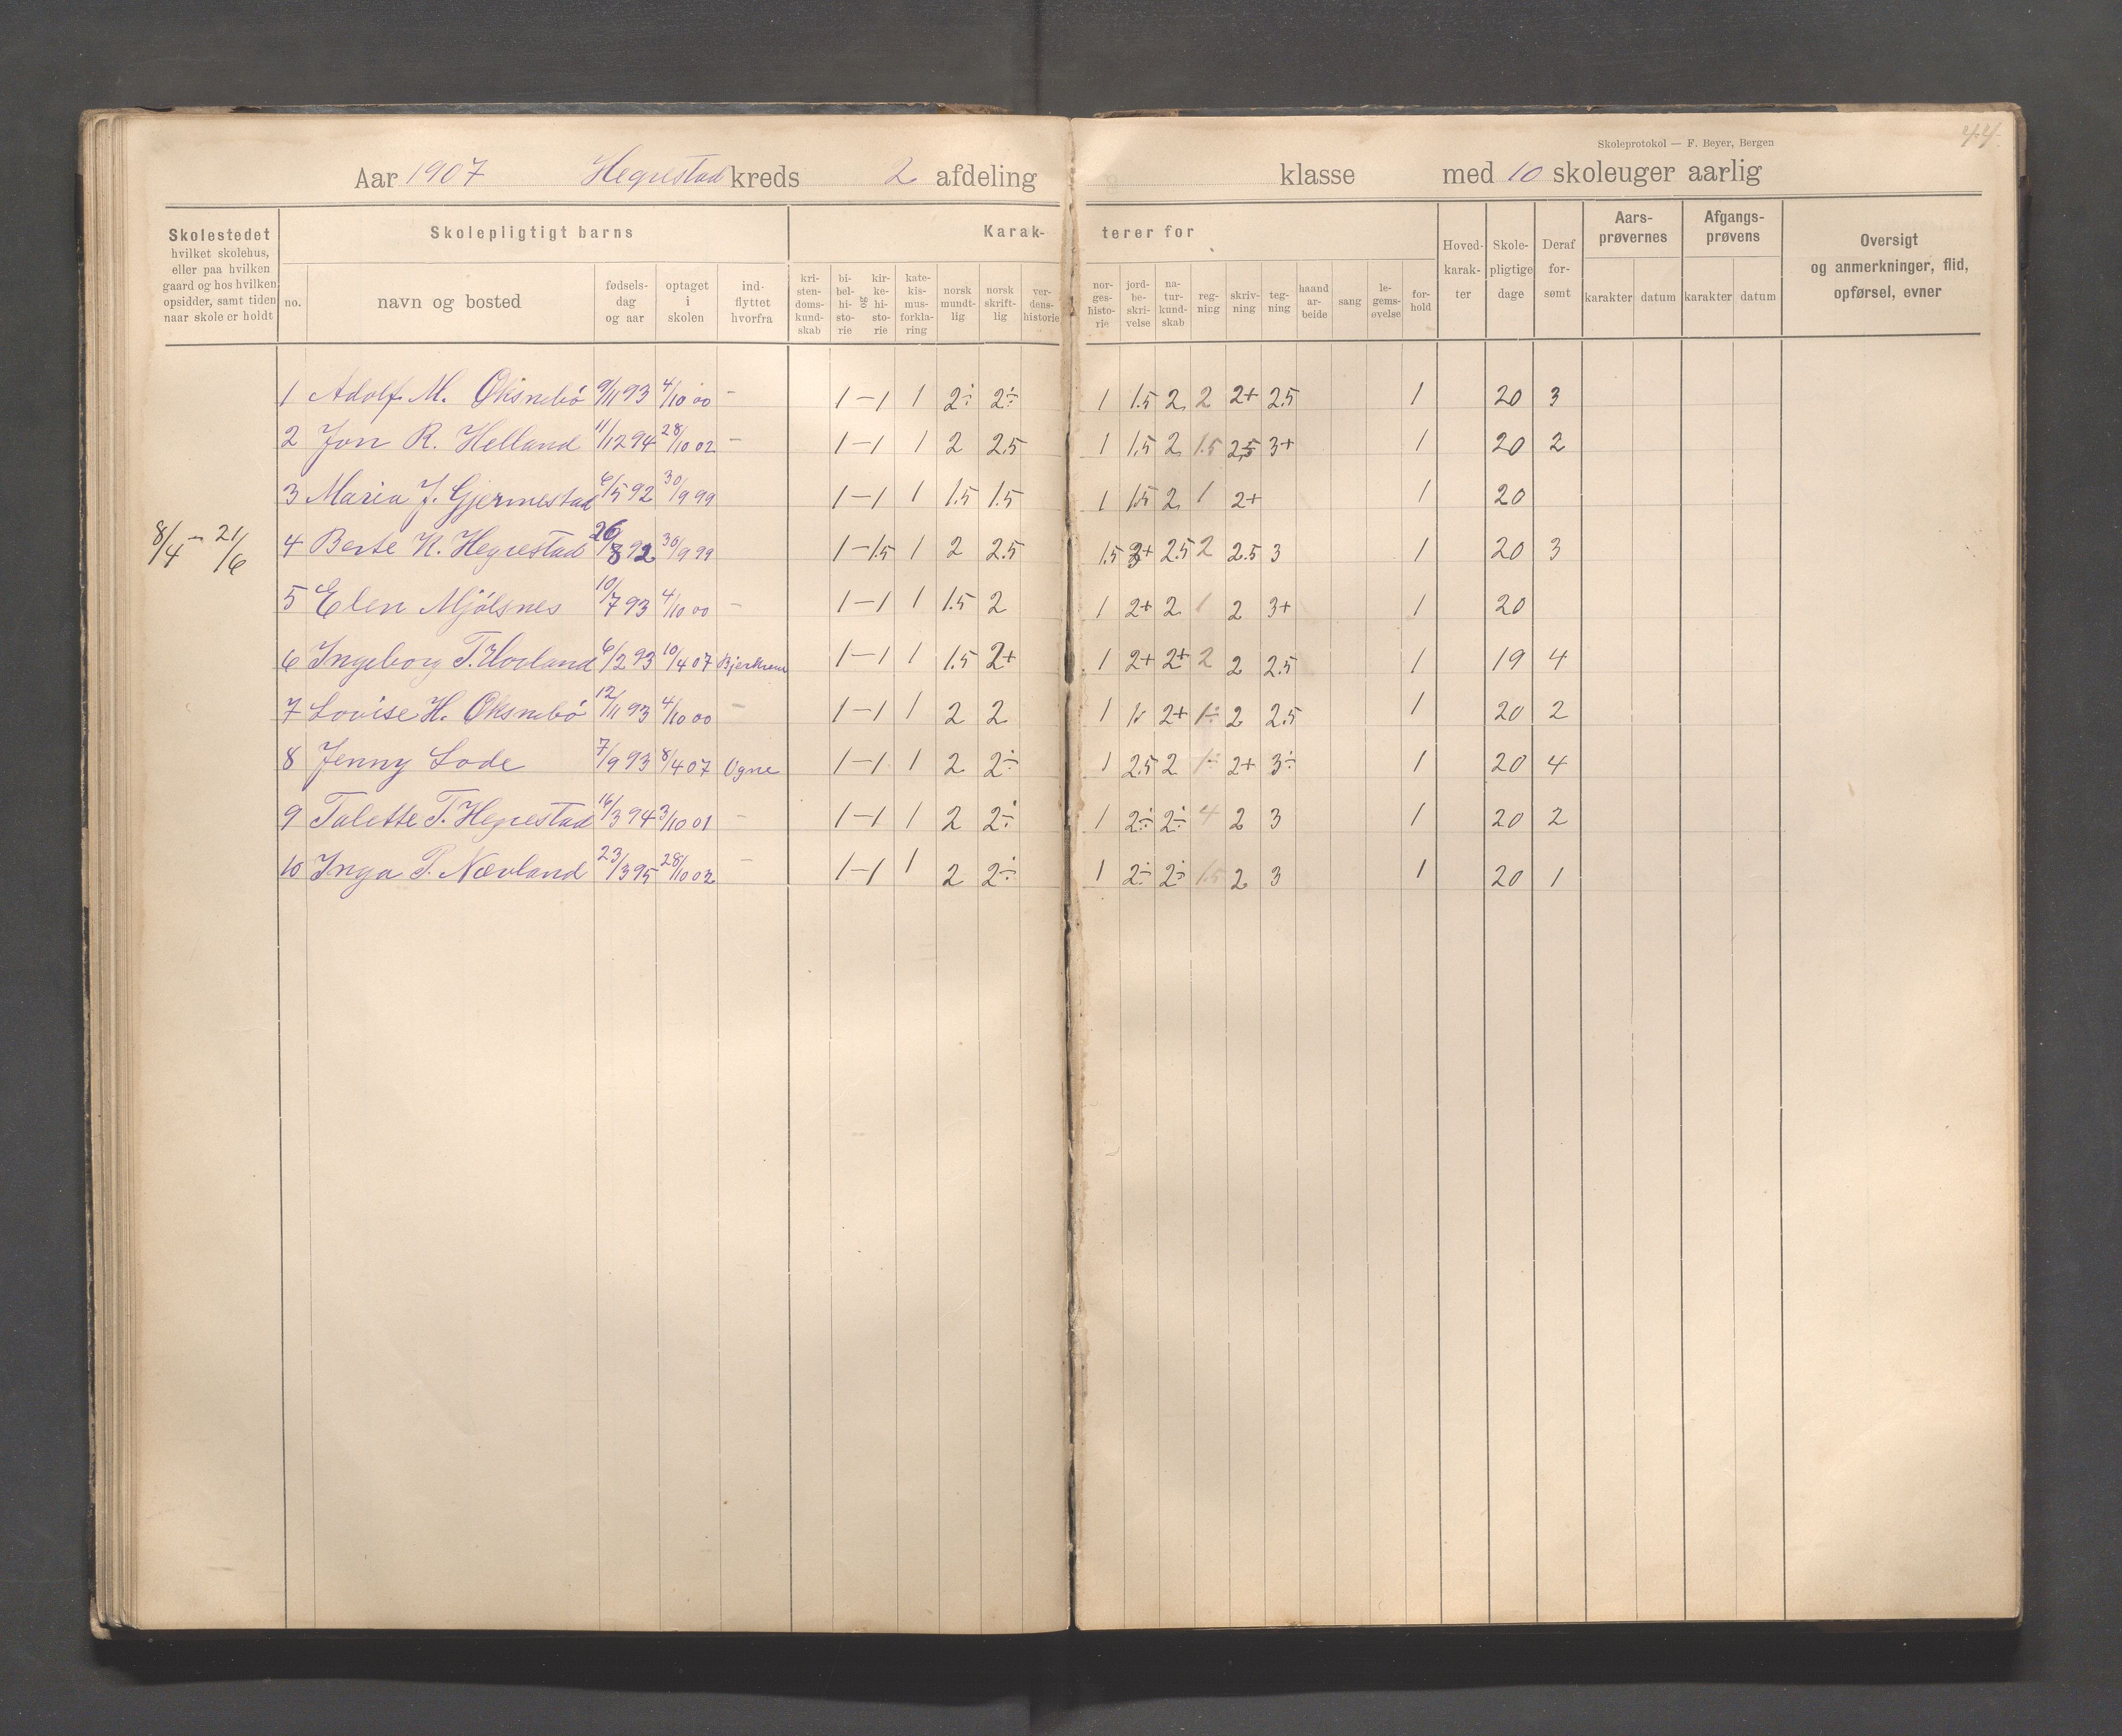 44.
Skoleprotokol — F. Beyer, Bergen
Aar 1907 Hegrestad kreds 2 afdeling klasse med 10 skoleuger aarlig
Skolestedet hvilket skolehus, eller paa hvilken gaard og hos hvilken opsidder, samt tiden naar skole er holdt
Skolepligtigt barns
Karakterer for
no. navn og bosted fødselsdag og aar optaget i skolen indflyttet hvorfra kristendomskundskab bibelhistorie og kirkehistorie katekismusforklaring norsk mundtlig norsk skriftlig verdenshistorie norgeshistorie jordbeskrivelse naturkundskab regning skrivning tegning haandarbeide sang legemsøvelse forhold Hovedkarakter Skolepligtige dage Deraf forsømt Aarsprøvernes karakter datum Afgangsprøvens karakter datum Oversigt og anmerkninger, flid, opførsel, evner
1 Adolf M. Øksnebø 9/11 93 4/10 00 – 1 – 1 1 2÷ 2÷ 1 1.5 2 2 2+ 2.5 1 20 3
2 Jon R. Helland 11/12 94 28/10 02 – 1 – 1 1 2 2.5 1 1.5 2 1.5 2.5 3+ 1 20 2
3 Maria J. Gjermestad 6/5 92 30/9 99 1 – 1 1 1.5 1.5 1 1.5 2 1 2+ 1 20
8/4 – 21/6
4 Berte N. Hegrestad 26/8 92 30/9 99 1 – 1.5 1 2 2.5 1.5 3+ 2.5 2 2.5 3 1 20 3
5 Elen Mjølsnes 10/7 93 4/10 00 – 1 – 1 1 1.5 2 1 2+ 2 1 2 3+ 1 20
6 Ingeborg T. Hovland 6/2 93 10/4 07 Bjerkrem 1 – 1 1 1.5 2+ 1 2+ 2+ 2 2 2.5 1 19 4
7 Lovise H. Øksnebø 12/11 93 4/10 00 – 1 – 1 1 2 2 1 2+ 1÷ 2 2.5 1 20 2
8 Jenny Lode 7/9 93 8/4 07 Ogne 1 – 1 1 2 2÷ 1 2.5 2 1÷ 2+ 3÷ 1 20 4
9 Talette T. Hegrestad 16/3 94 3/10 01 – 1 – 1 1 2 2÷ 1 2÷ 2÷ 4 2 3 1 20 2
10 Inga P. Nævland 23/3 95 28/10 02 – 1 – 1 1 2 2÷ 1 2÷ 2÷ 1.5 2 3 1 20 1